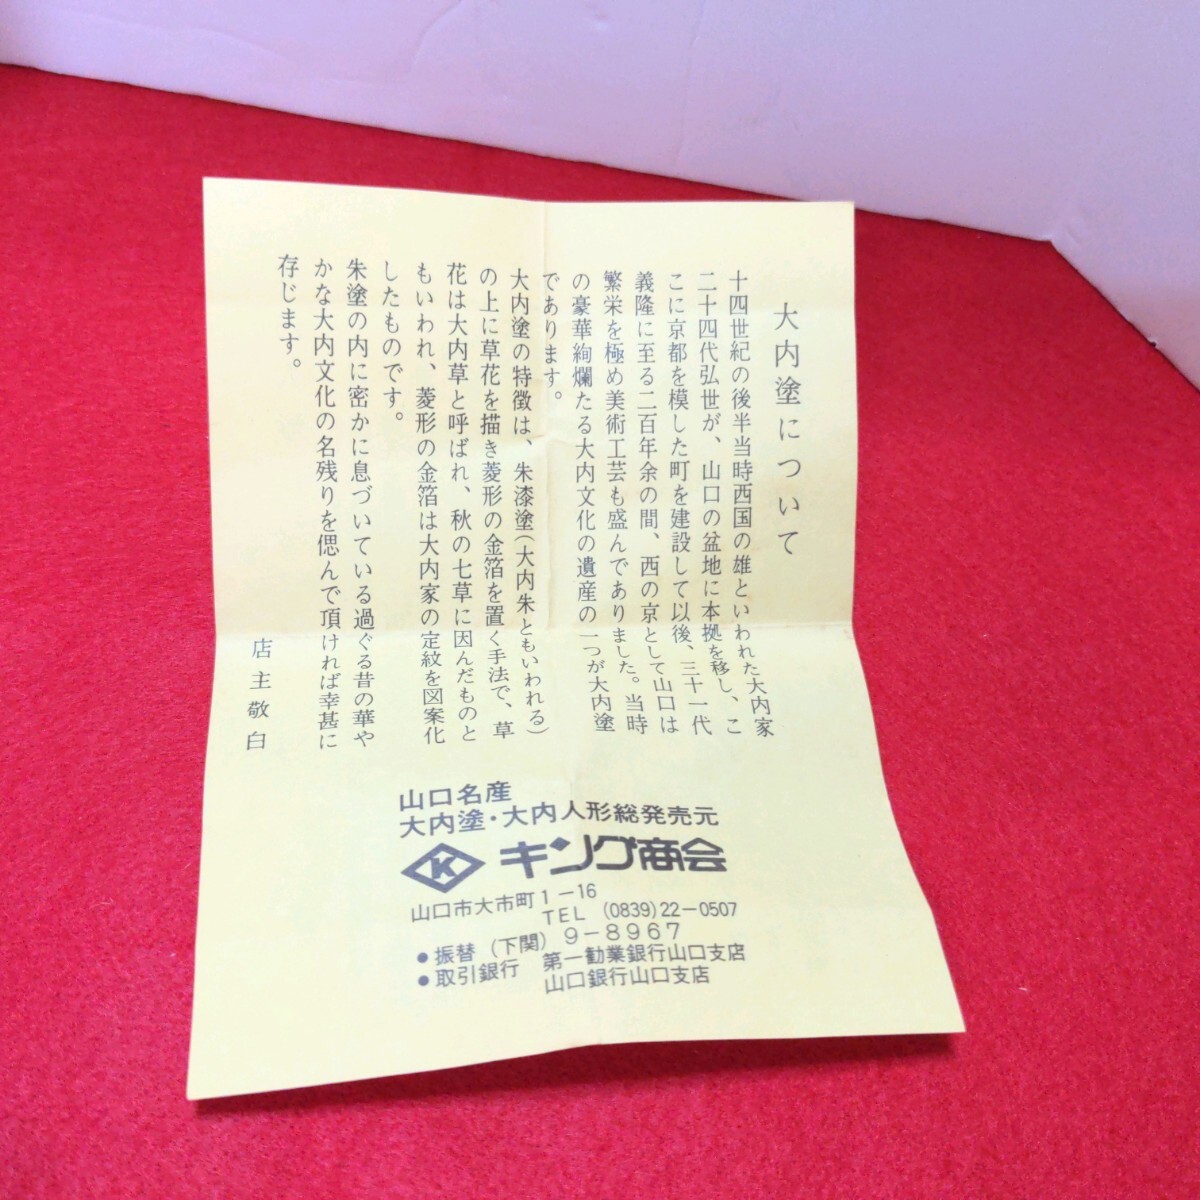 大内塗について
十四世紀の後半当時西国の雄といわれた大内家
二十四代弘世が、山口の盆地に本拠を移し、こ
こに京都を模した町を建設して以後、三十一代
義隆に至る二百年余の間、西の京として山口は
繁栄を極め美術工芸も盛んでありました。当時
の豪華絢爛たる大内文化の遺産の一つが大内塗
であります。
大内塗の特徴は、朱漆塗(大内朱ともいわれる)
の上に草花を描き菱形の金箔を置く手法で、草
花は大内草と呼ばれ、秋の七草に因んだものと
もいわれ、菱形の金箔は大内家の定紋を図案化
したものです。
朱塗の内に密かに息づいている過ぐる昔の華や
かな大内文化の名残りを偲んで頂ければ幸甚に
存じます。
店主敬白
山口名産
大内塗・大内人形総発売元
K キング商会
山口市大市町1-16
TEL (0839)22-0507
●振替 (下関) 9-8967
●取引銀行 第一勧業銀行山口支店
山口銀行山口支店